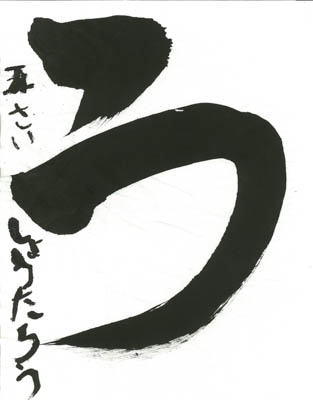 う
五さい しょうたろう